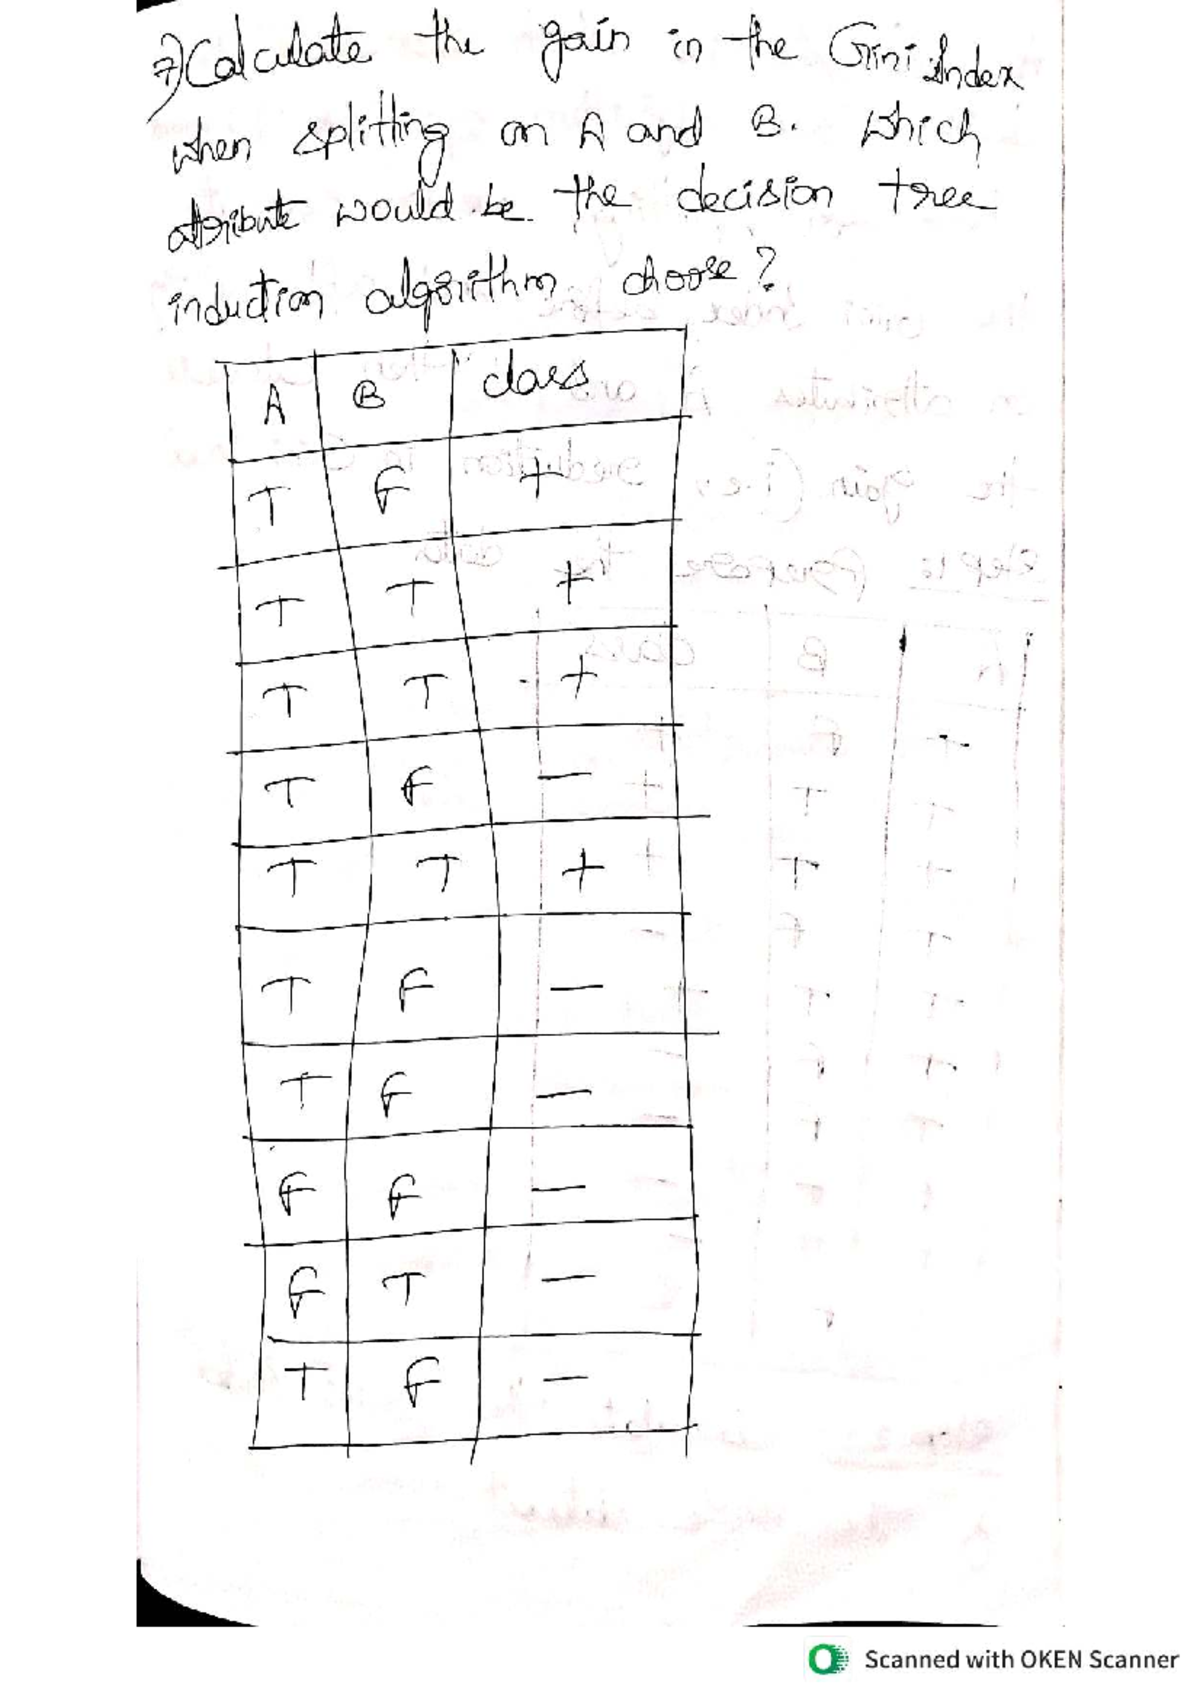 7) Calculate the gain in the Gini Index
when splitting on A and B. Which
attribute would be the decision tree
induction algorithm choose?
A B class
T F +
T T +
T T +
T F -
T T +
T F -
T F -
F F -
F T -
T F -
Scanned with OKEN Scanner